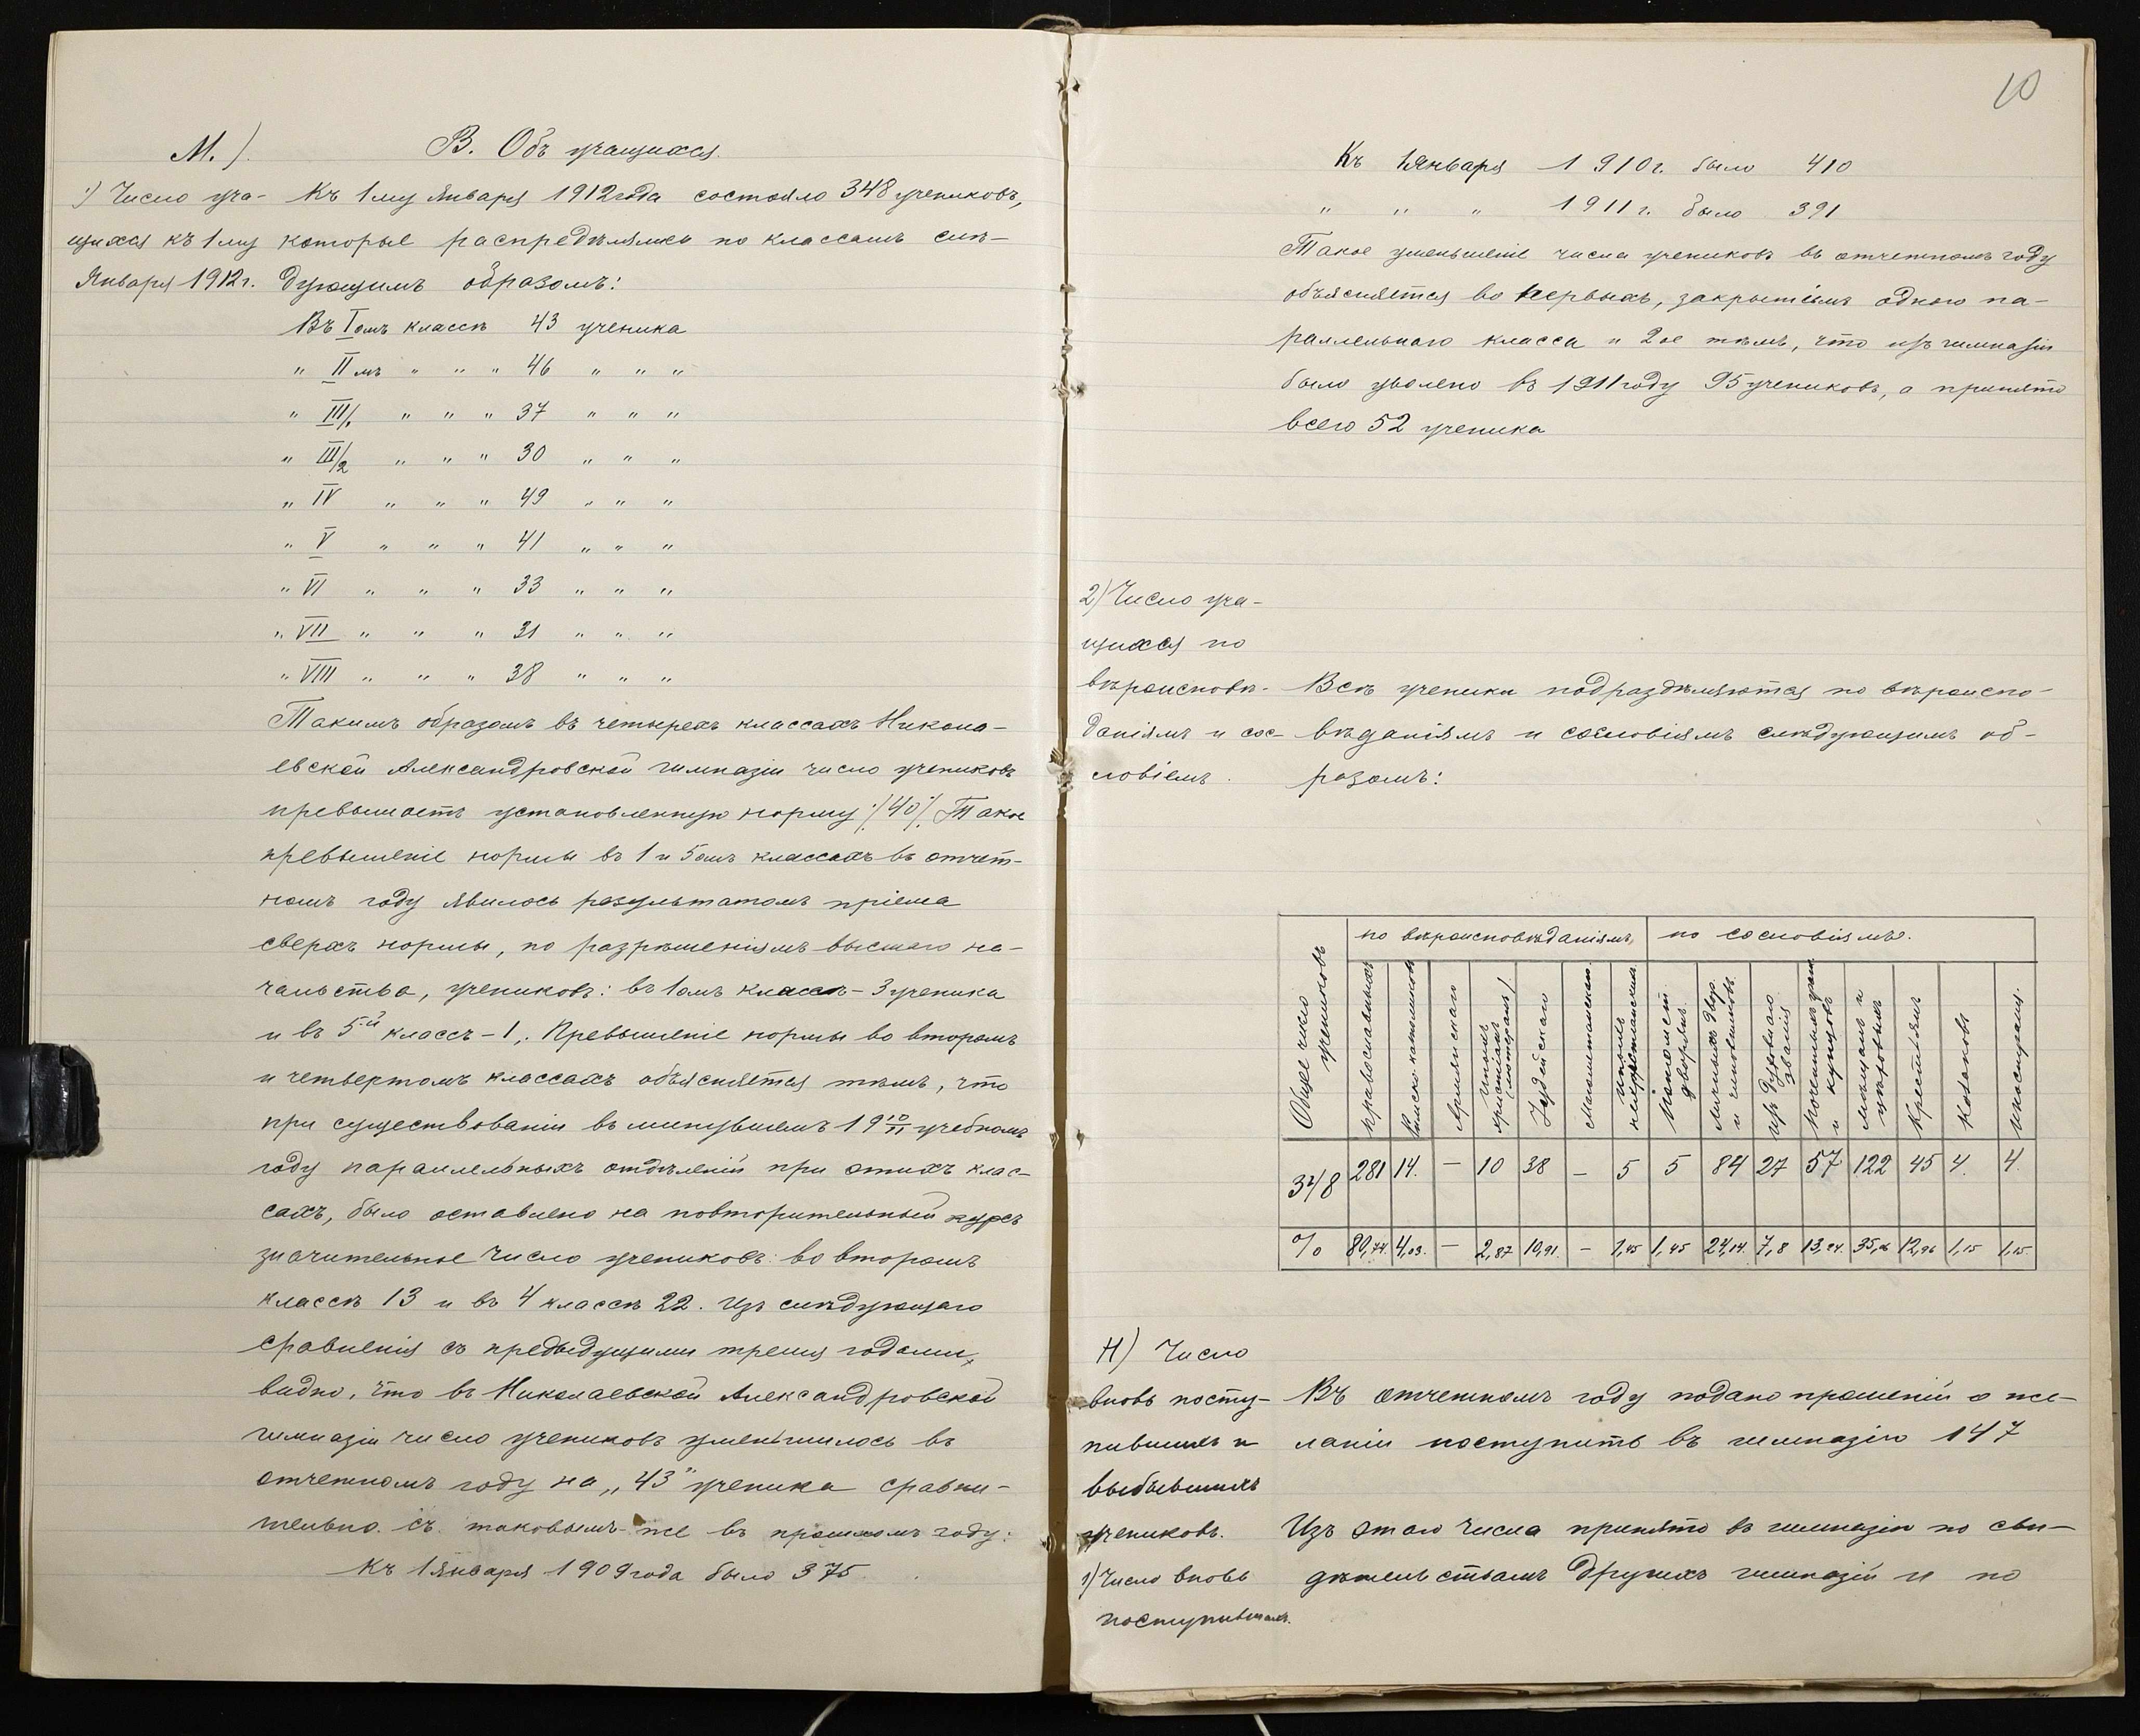 М.) В. Объ учащихся.
1) Число уча-
щихся къ 1му
Января 1912 г.
Къ 1му января 1912 года состояло 348 учениковъ,
которые распредѣлялись по классамъ слѣ-
дующимъ образомъ:
Въ I омъ классѣ 43 ученика
" II мъ " " " 46 " " "
" III/1 " " " 37 " " "
" III/2 " " " 30 " " "
" IV " " " 49 " " "
" V " " " 41 " " "
" VI " " " 33 " " "
" VII " " " 31 " " "
" VIII " " " 38 " " "
Такимъ образомъ въ четырехъ классахъ Никола-
евской Александровской гимназіи число учениковъ
превышаетъ установленную норму /40/. Такое
превышеніе нормы въ 1 и 5омъ классахъ въ отчет-
номъ году явилось результатомъ пріема
сверхъ нормы, по разрѣшеніямъ высшаго на-
чальства, учениковъ: въ 1омъ классѣ - 3 ученика
и въ 5-й классъ - 1,. Превышеніе нормы во второмъ
и четвертомъ классахъ объясняется тѣмъ, что
при существованіи въ минувшемъ 19 10/11 учебномъ
году параллельныхъ отдѣленій при этихъ клас-
сахъ, было оставлено на повторительный курсъ
значительное число учениковъ: во второмъ
классѣ 13 и въ 4 классѣ 22. Изъ слѣдующаго
сравненія съ предыдущими тремя годами,
видно, что въ Николаевской Александровской
гимназіи число учениковъ уменьшилось въ
отчетномъ году на „43" ученика сравни-
тельно съ таковымъ-же въ прошломъ году:
Къ 1 января 1909 года было 375
10
Къ 1 Января 1910 г. было 410
" " " 1911 г. было 391
Такое уменьшеніе числа учениковъ въ отчетномъ году
объясняется во первыхъ, закрытіемъ одного па-
раллельнаго класса и 2ое тѣмъ, что изъ гимназіи
было уволено въ 1911 году 95 учениковъ, а принято
всего 52 ученика
2) Число уча-
щихся по
вѣроисповѣ-
даніямъ и сос-
ловіямъ.
Всѣ ученики подраздѣляются по вѣроиспо-
вѣданіямъ и сословіямъ слѣдующимъ об-
разомъ:
по вѣроисповѣданіямъ, по сословіямъ.
Общее число учениковъ
православныхъ
Римско-католиковъ
Армянскаго
иныхъ христіанъ /лютеранъ/
Іудейскаго
Магометанскаго
иныхъ нехристіанскихъ
Потомств. дворянъ
Личныхъ двор. и чиновниковъ
изъ духовнаго званія
Почетныхъ граж. и купцовъ
мѣщанъ и цеховыхъ
Крестьянъ
Козаковъ
иностранц.
348 281 14. — 10 38 — 5 5 84 27 57 122 45 4. 4.
% 80,74. 4,03. — 2,87 10,91. — 1,45 1,45 24,14. 7,8 13,24. 35,06 12,96 1,15 1,15
Н) Число
вновь посту-
пившихъ и
выбывшихъ
учениковъ.
1) Число вновь
поступившихъ.
Въ отчетномъ году подано прошеній о же-
ланіи поступить въ гимназію 147
Изъ этого числа принято въ гимназію по сви-
дѣтельствамъ другихъ гимназій и по